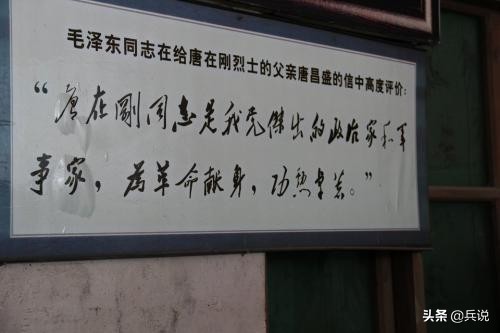 毛泽东同志在给唐在刚烈士的父亲唐昌盛的信中高度评价：
“唐在剛同志是我党傑出的政治家和军
事家，為革命献身，功勲卓著。”
头条 @兵说